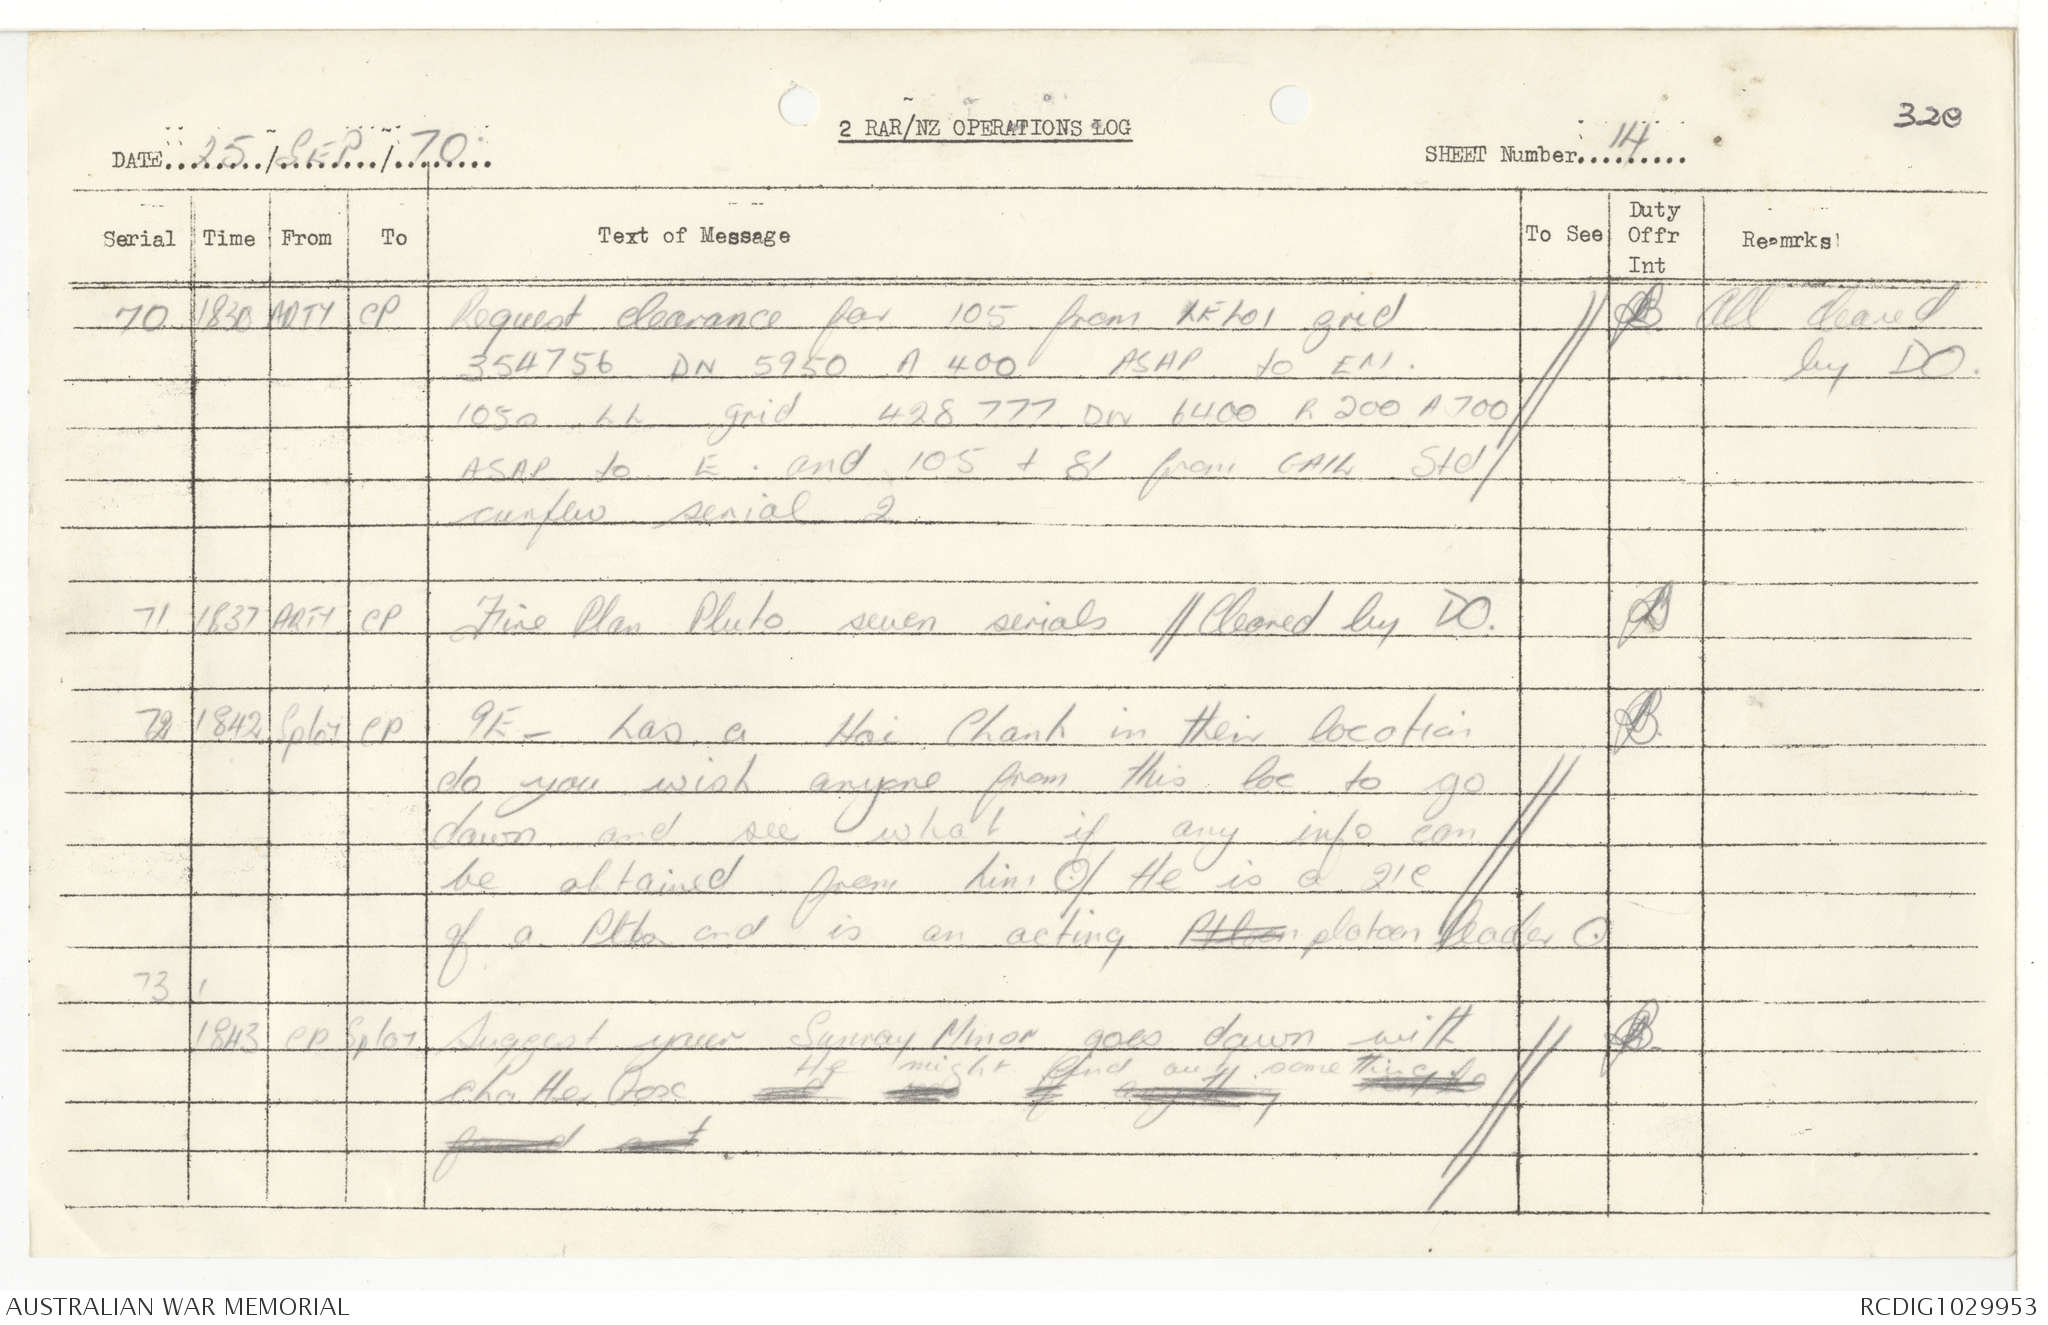 328
2 RAR/NZ OPERATIONS LOG
DATE 25/SEP/70
SHEET Number 14
Serial Time From To Text of Message To See Duty Offr Int Remarks
70 1830 ARTY CP Request clearance for 105 from grid All cleared
354756 DN 5950 A 400 ASAP to EM. by DO.
105a LL grid 428 777 DN 6400 R 200 A 700
ASAP to E. and 105 + 81 from GAIL Std
curfew serial 2
71 1837 ARTY CP Fire Plan Pluto seven serials // Cleared by DO.
72 1842 CP 9E - has a Hoi Chanh in their location
do you wish anyone from this loc to go
down and see what if any info can
be obtained from him. He is a 2IC
of a and is an acting platoon leader
73
1843 CP Suggest your Sunray Minor goes down with
chatter box He might find out some
AUSTRALIAN WAR MEMORIAL
RCDIG1029953